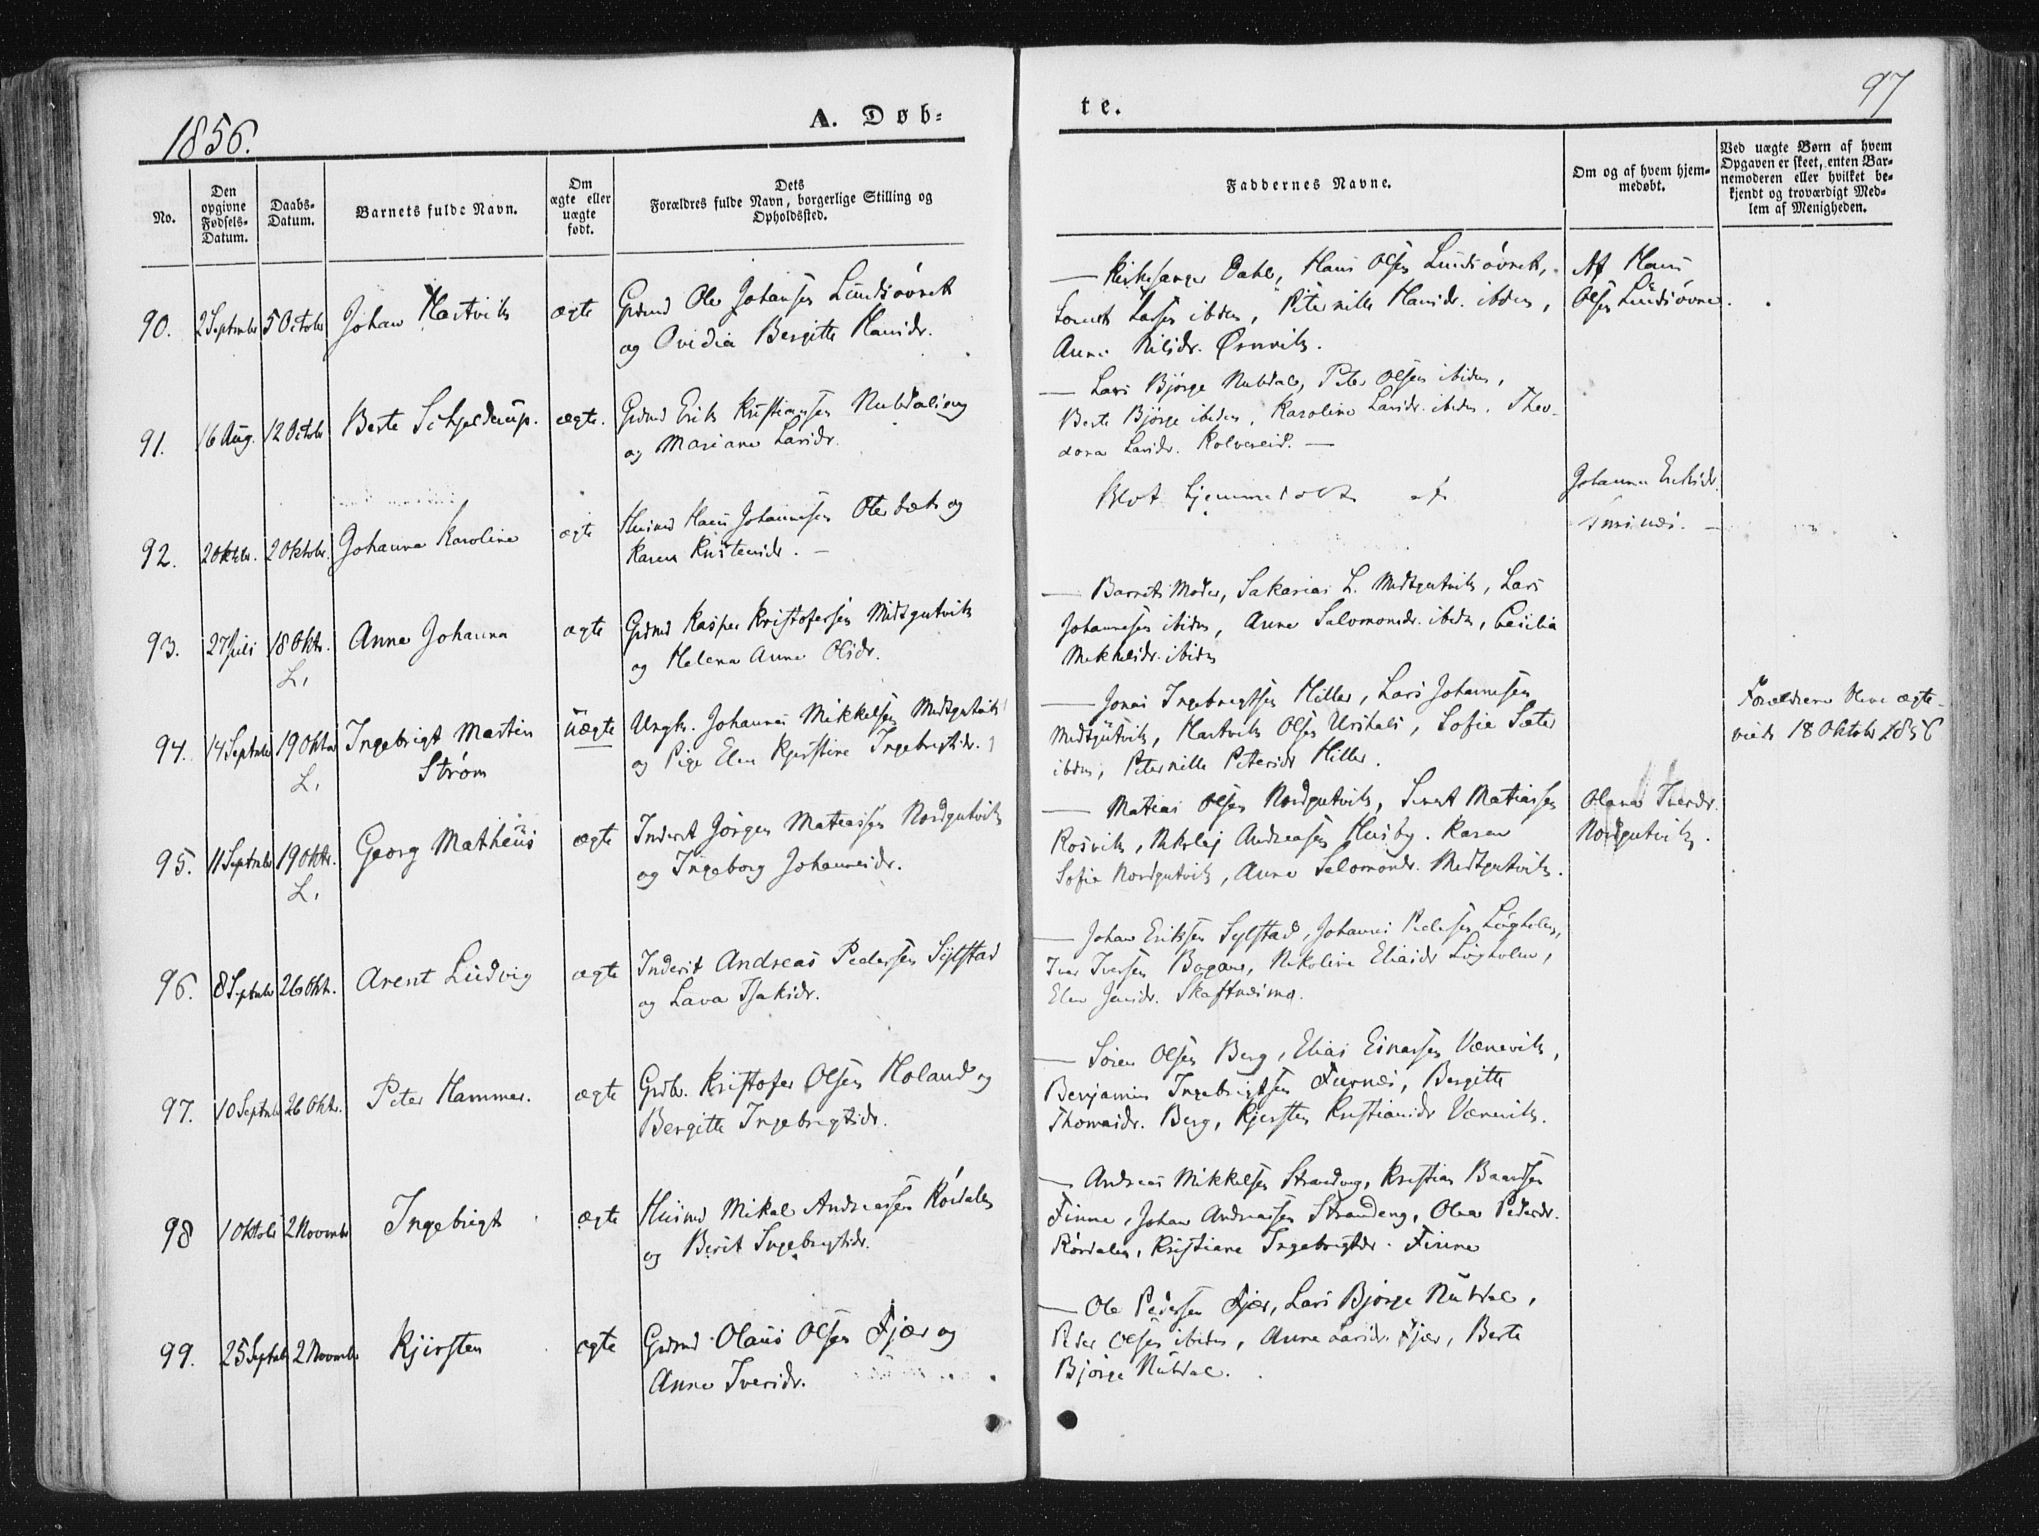 1856.
A. Døb-
te.
97
No.
Den
opgivne
Fødsels-
Datum.
Daabs-
Datum.
Barnets fulde Navn.
Om
ægte eller
uægte
født.
Dets
Forældres fulde Navn, borgerlige Stilling og
Opholdssted.
Faddernes Navne.
Om og af hvem hjem-
medøbt.
Ved uægte Børn af hvem
Opgaven er skeet, enten Bar-
nemoderen eller hvilket be-
kjendt og troværdigt Med-
lem af Menigheden.
90. 2 Septmbr 5 October Johan Hartvik ægte Grdmd Ole Johansen Lundsøvret
og Ovidia Bergitte Hansdr.
— Kirkesanger Dahl, Hans Olsen Lundsøvret,
Lassen ibiden, Peternille Hansdr. ibiden,
Anne Nilsdr. Ørnvik.
Af Hans
Olsen Lundsøvre.
91. 16 Aug. 12 October Berte Schjelderup. ægte. Grdmd Erik Kristiansen Nubdal og
og Mariane Larsdr.
— Lars Bjørge Nubdal, Peter Olsen ibiden,
Berte Bjørge ibiden, Karoline Larsdr. ibiden, Theo-
dora Larsdr. Kolvereid. —
92. 2 Oktbr. 2 Oktobr. Johanna Karoline ægte Husmd Hans Johannesen Oterbæk og
Karen Kristensdr. —
Blot hjemmedøbt af
Johanna Eriksdr.
93. 27 Juli 18 Oktr. Anne Johanna ægte Grdmd Kasper Kristofersen Midtgutvik
L. og Helena Anna Olsdr.
— Barnets Moder, Sakarias L. Midtgutvik, Lars
Johannesen ibiden, Anne Salomonsdr. ibiden, Cecilia
Mikkelsdr. ibiden
94. 14 Septmbr 19 Oktbr Ingebrigt Martin uægte Ungk. Johannes Mikkelsen Midtgutvik
L. Strøm og Pige Elen Kjerstine Ingebrigtsdr.
— Jonas Ingebrigtsen Hiller, Lars Johannesen
Midtgutvik, Hartvik Olsen , Sofie Sæter
ibiden, Peternille Petersdr Hiller.
Forældrene bleve ægte-
viede 18 Oktober 1856
95. 11 Septmbr 19 Oktr. Georg Matheus ægte Inderst Jørgen Mateassen Nordgutvik
L. og Ingeborg Johannesdr.
— Mateas Olsen Nordgutvik, Sivert Matiassen
Rosvik, Nikolaj Andreassen Husby. Karen
Sofie Nordgutvik, Anne Salomonsdr. Midtgutvik.
Olana Iversdr.
Nordgutvik.
96. 8 Septmbr 26 Okt. Arent Ludvig ægte Inderst Andreas Pedersen Sylstad
og Lava Isaksdr.
— Johan Eriksen Sylstad, Johannes Pedersen Lugholen,
Iver Iversen , Nikoline Eliasdr Lugholen,
Elen Jensdr. Skaftnesmo.
97. 10 Septmbr 26 Oktr. Peter Hammer. ægte Grdbr. Kristofer Olsen Holand og
Bergitte Ingebrigtsdr.
— Søren Olsen Berg, Elias Einarsen Værevik,
Benjamin Ingebrigtsen Furnæs, Bergitte
Thomasdr. Berg, Kjersten Kristiansdr Værevik.
98 1 Oktobr 2 Novmbr Ingebrigt ægte Husmd Mikal Andreassen Rørdalen
og Berit Ingebrigtsdr.
— Andreas Mikkelsen Strandeng, Kristian Baardsen
Finne, Johan Andreassen Strandeng, Olea Pedersdr.
Rørdalen, Kristiane Ingebrigtsdr. Finne
99. 25 Septmbr 2 Novmbr Kjersten ægte Grdmd Olaus Olsen Fjær og
Anne Iversdr.
— Ole Pedersen Fjær, Lars Bjørge Nubdal,
Peder Olsen ibiden, Anne Larsdr. Fjær, Berte
Bjørge Nubdal.